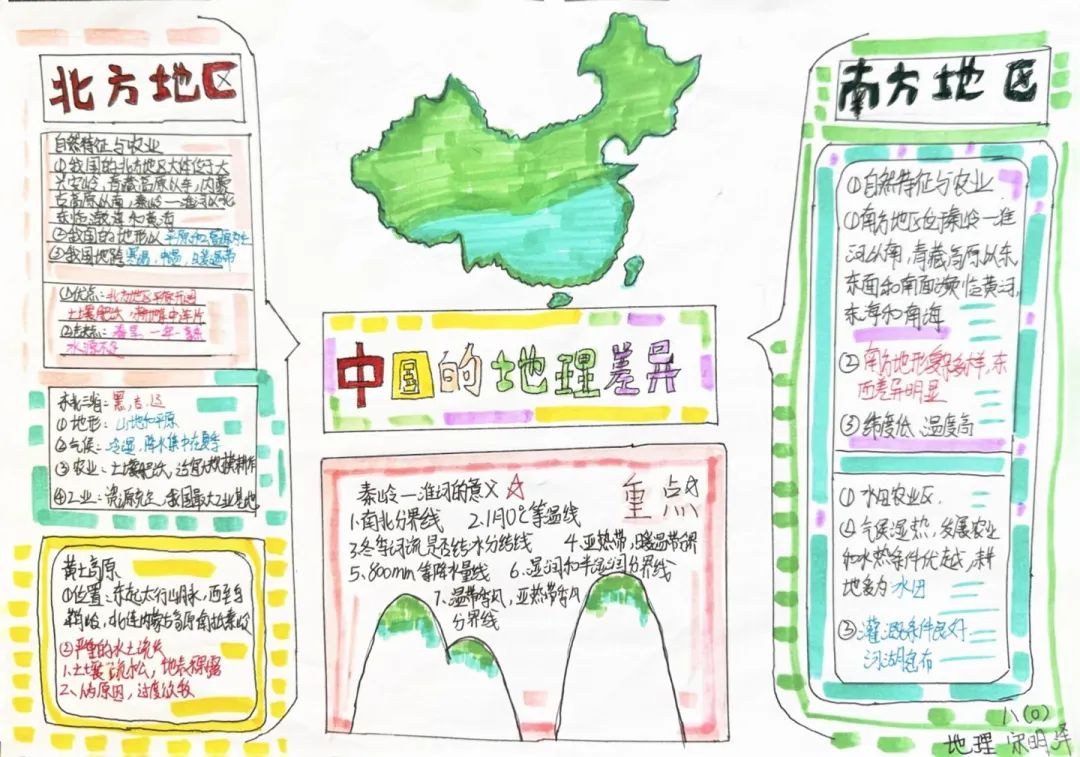 北方地区
自然特征与农业
①我国的北方地区大体位于大
兴安岭，青藏高原以东，内蒙
古高原以南，秦岭—淮河以北
东临渤海和黄海
②我国的地形以平原和高原为主
③我国地跨寒温，中温，暖温带
①优点：北方地区平原开阔
土壤肥沃，耕地集中连片
一年一熟
水源不足
东北三省：黑，吉，辽
①地形：山地和平原
②气候：冷湿，降水集中在夏季
③农业：土壤肥沃，适宜大规模耕作
④工业：资源充足，我国最大工业基地
黄土高原
①位置：东起太行山脉，西至乌
鞘岭，北连内蒙古高原南抵秦岭
②严重的水土流失
1.土壤疏松，地表裸露
2.人为原因，过度放牧
中国的地理差异
秦岭—淮河的意义
重点
1.南北分界线 2.1月0℃等温线
3.冬季河流是否结冰分界线 4.亚热带，暖温带分界
5.800mm等降水量线 6.湿润和半湿润分界线
7.温带季风，亚热带季风
分界线
南方地区
①自然特征与农业
①南方地区位于秦岭—淮
河以南，青藏高原以东，
东面和南面濒临黄河，
东海和南海
②南方地形复杂多样，东
西差异明显
③纬度低、温度高
①水田农业区，
②气候湿热，发展农业
和水热条件优越，耕
地多为水田
③灌溉条件良好，
河湖广布
八(0)
地理 宋明泽